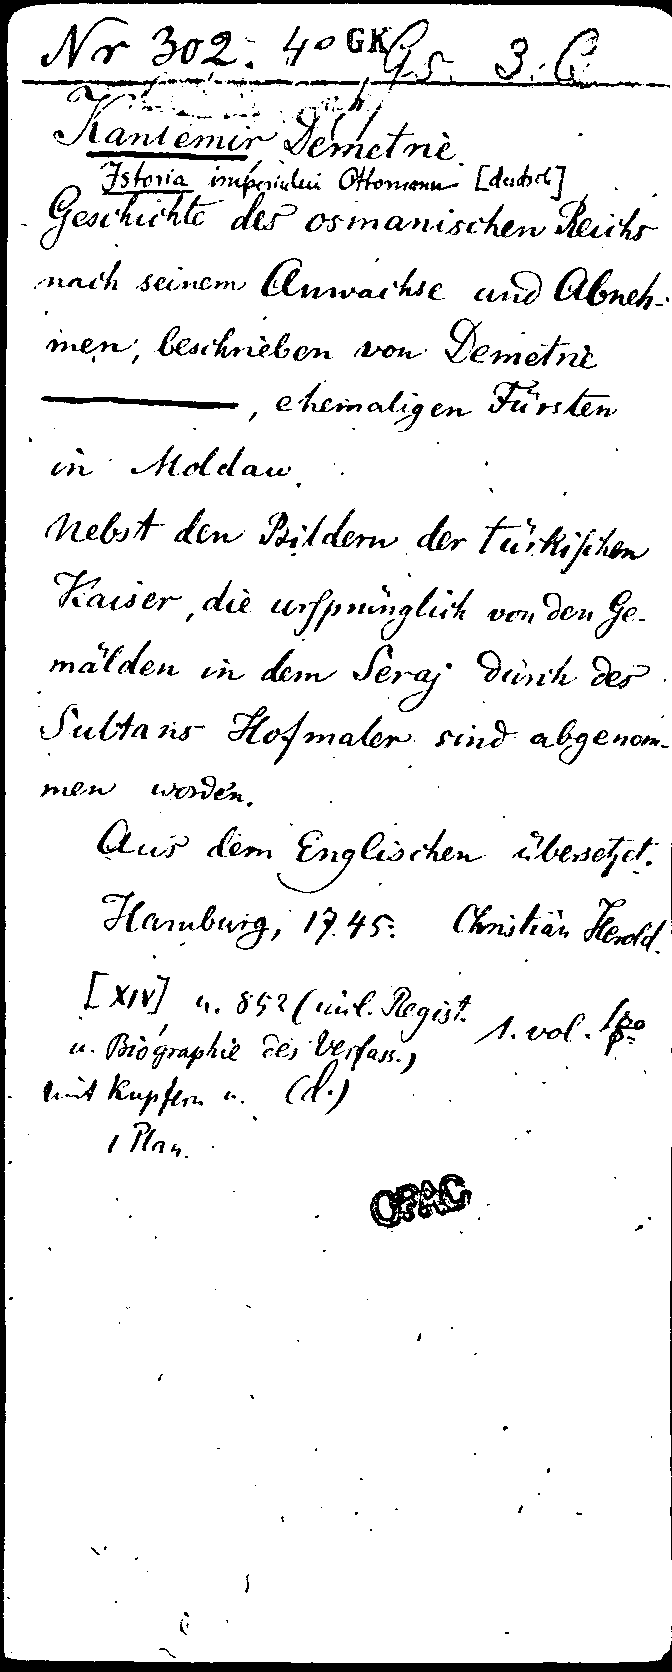 Nr 302. 4° GK Gs. 3. C
Kantemir Demetrie
Istoria imperiului Ottomann [deutsch]
Geschichte des osmanischen Reichs
nach seinem Anwachse und Abneh-
men, beschrieben von Demetrie
———, ehemaligen Fürsten
in Moldau.
Nebst den Bildern der türkischen
Kaiser, die ursprünglich von den Ge-
mälden in dem Seraj durch des
Sultans Hofmaler sind abgenom-
men worden.
Aus dem Englischen übersetzt.
Hamburg, 1745. Christian Herold.
[XIV] u. 852 (inkl. Regist.
u. Biographie des Verfass.) 1. vol.
mit Kupfern u. (d.)
1 Plan.
OPAC